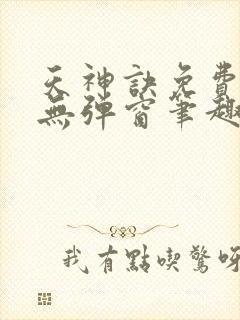 天神訣免費
無彈窗筆趣
我有點喫驚呀